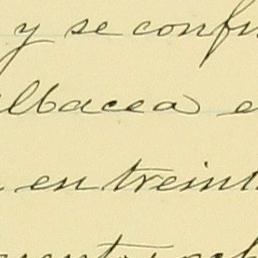 y se confir
albacea e
en treint